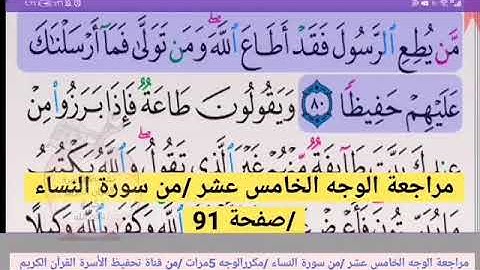 مَّن يُطِعِ ٱلرَّسُولَ فَقَدۡ أَطَاعَ ٱللَّهَۖ وَمَن تَوَلَّىٰ فَمَآ أَرۡسَلۡنَٰكَ
عَلَيۡهِمۡ حَفِيظٗا ٨٠ وَيَقُولُونَ طَاعَةٞ فَإِذَا بَرَزُواْ مِنۡ
عِندِكَ بَيَّتَ طَآئِفَةٞ مِّنۡهُمۡ غَيۡرَ ٱلَّذِي تَقُولُۖ وَٱللَّهُ يَكۡتُبُ
مراجعة الوجه الخامس عشر /من سورة النساء
/صفحة 91
وَكَفَىٰ بِٱللَّهِ وَكِيلًا
مراجعة الوجه الخامس عشر /من سورة النساء /مكررالوجه 5مرات /من قناة تحفيظ الأسرة القرآن الكريم